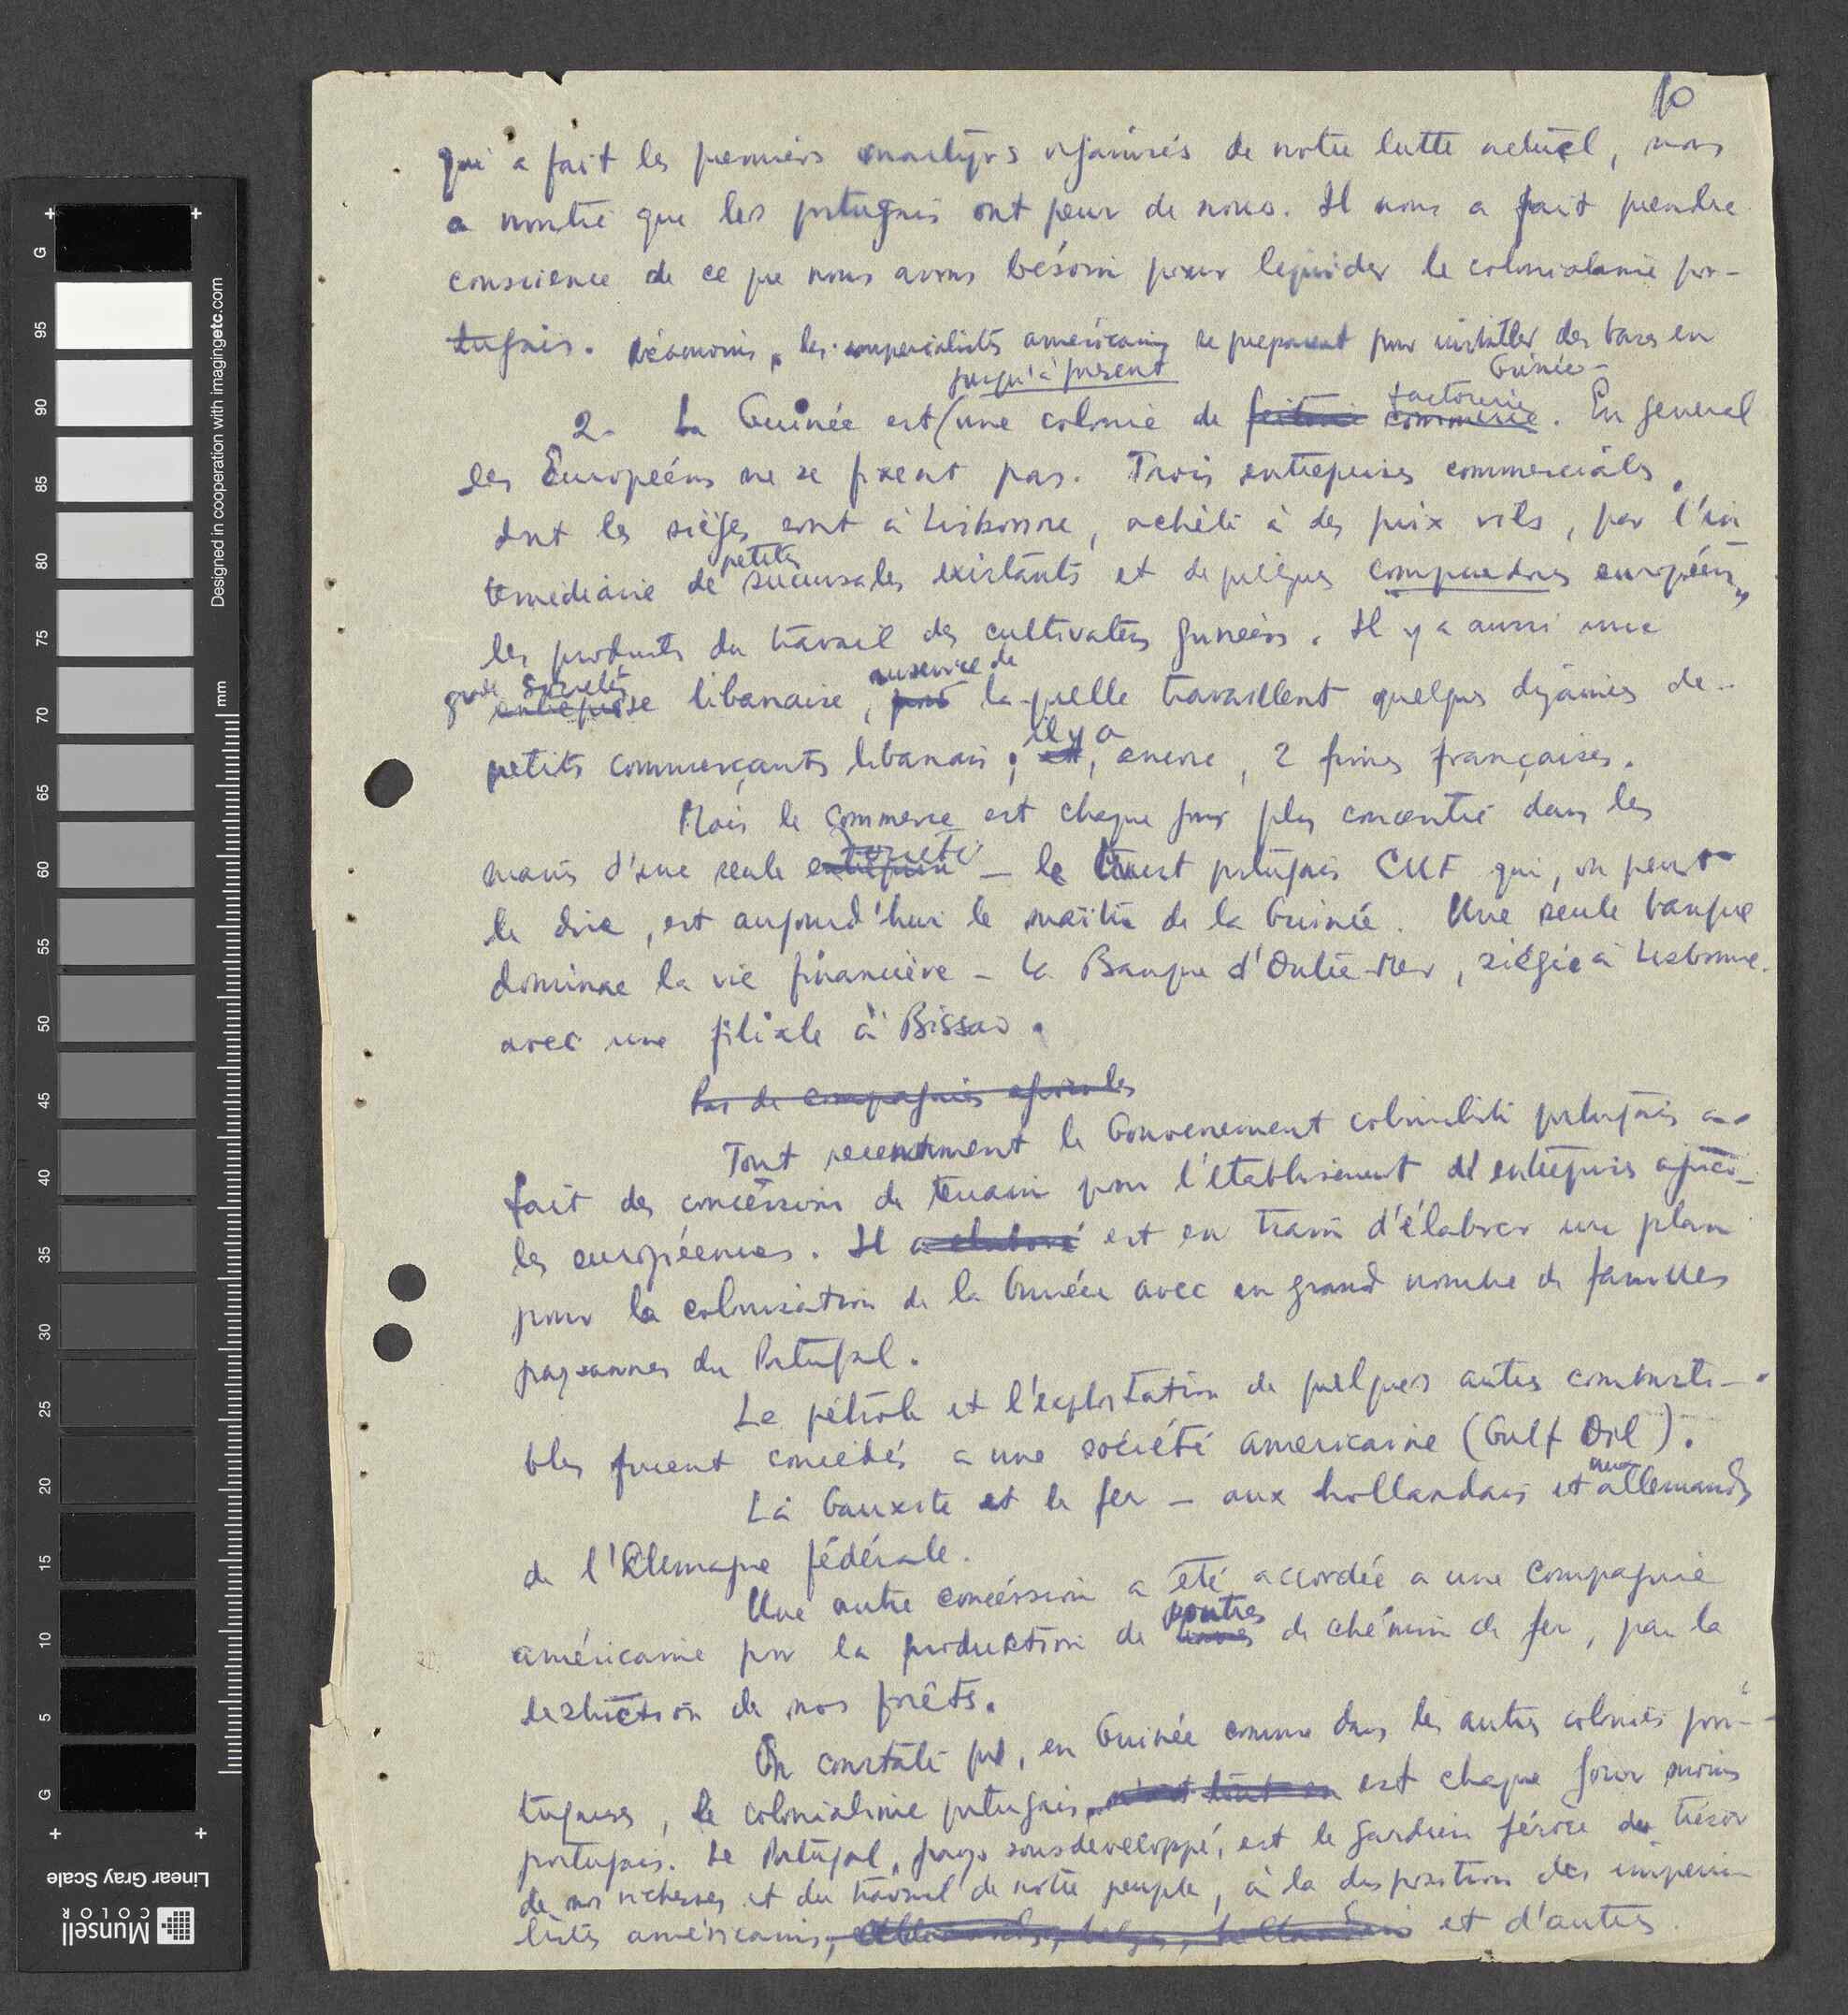 10
qui a fait les premiers martyrs organisés de notre lutte actuel, nous
a montré que les portugais ont peur de nous. Il nous a fait prendre
conscience de ce que nous avons bésoin pour liquider le colonialisme por-
tugais. Néamoins, les imperialistes américains se preparent pour installer des bases en
Guinée-
jusqu'à présent
2- La Guinée est (une colonie de feitorie commerce factorerie. En general
les Européens ne se fixent pas. Trois entreprises commerciales,
dont les sièges sont à Lisbonne, achète à des prix vils, par l'in
termediaire de petites succursales existants et de quelques compradores européens,
les produits du travail des cultivateurs guinéens. Il y a aussi une
grande société entreprise libanaise, pour au service de la quelle travaillent quelques dizaines de
petits commerçants libanais; et, il y a encore, 2 firmes françaises.
Mais le commerce est chaque jour plus concentré dans les
mains d'une seule entreprise société - le trust portugais CUF qui, on peut
le dire, est aujourd'hui le maître de la Guinée. Une seule banque
domine la vie financière - la Banque d'Outre-Mer, siégée à Lisbonne.
avec une filiale à Bissao.
Pas de compagnies agricoles
Tout recemment le Gouvernement colonialiste portugais a
fait des concessions de terrain pour l'etablissement d'entreprises agrico-
les européennes. Il a elaboré est en train d'élaborer un plan
pour la colonisation de la Guinée avec un grand nombre de familles
paysannes du Portugal.
Le pétrole et l'exploitation de quelques autres combusti-
bles furent concédés a une société americaine (Gulf Oil).
La bauxite et le fer - aux hollandais et aux allemands
de l'Allemagne fédérale.
Une autre concéssion a été accordée a une compagnie
américaine pour la production de poutres de chémin de fer, par la
destruction de nos forêts.
On constate que, en Guinée comme dans les autres colonies por-
tugaises, le colonialisme portugais, est chaque jour moins
portugais. Le Portugal, pays sousdeveloppé, est le gardien féroce du trésor
de nos richesses et du travail de notre peuple, à la disposition des imperia-
listes américains, allemands, belges, hollandais et d'autres.
Designed in cooperation with imagingetc.com
mm
G
95
90
85
80
75
70
65
60
55
50
45
40
35
30
25
20
15
10
5
G
Linear Gray Scale
Munsell
COLOR